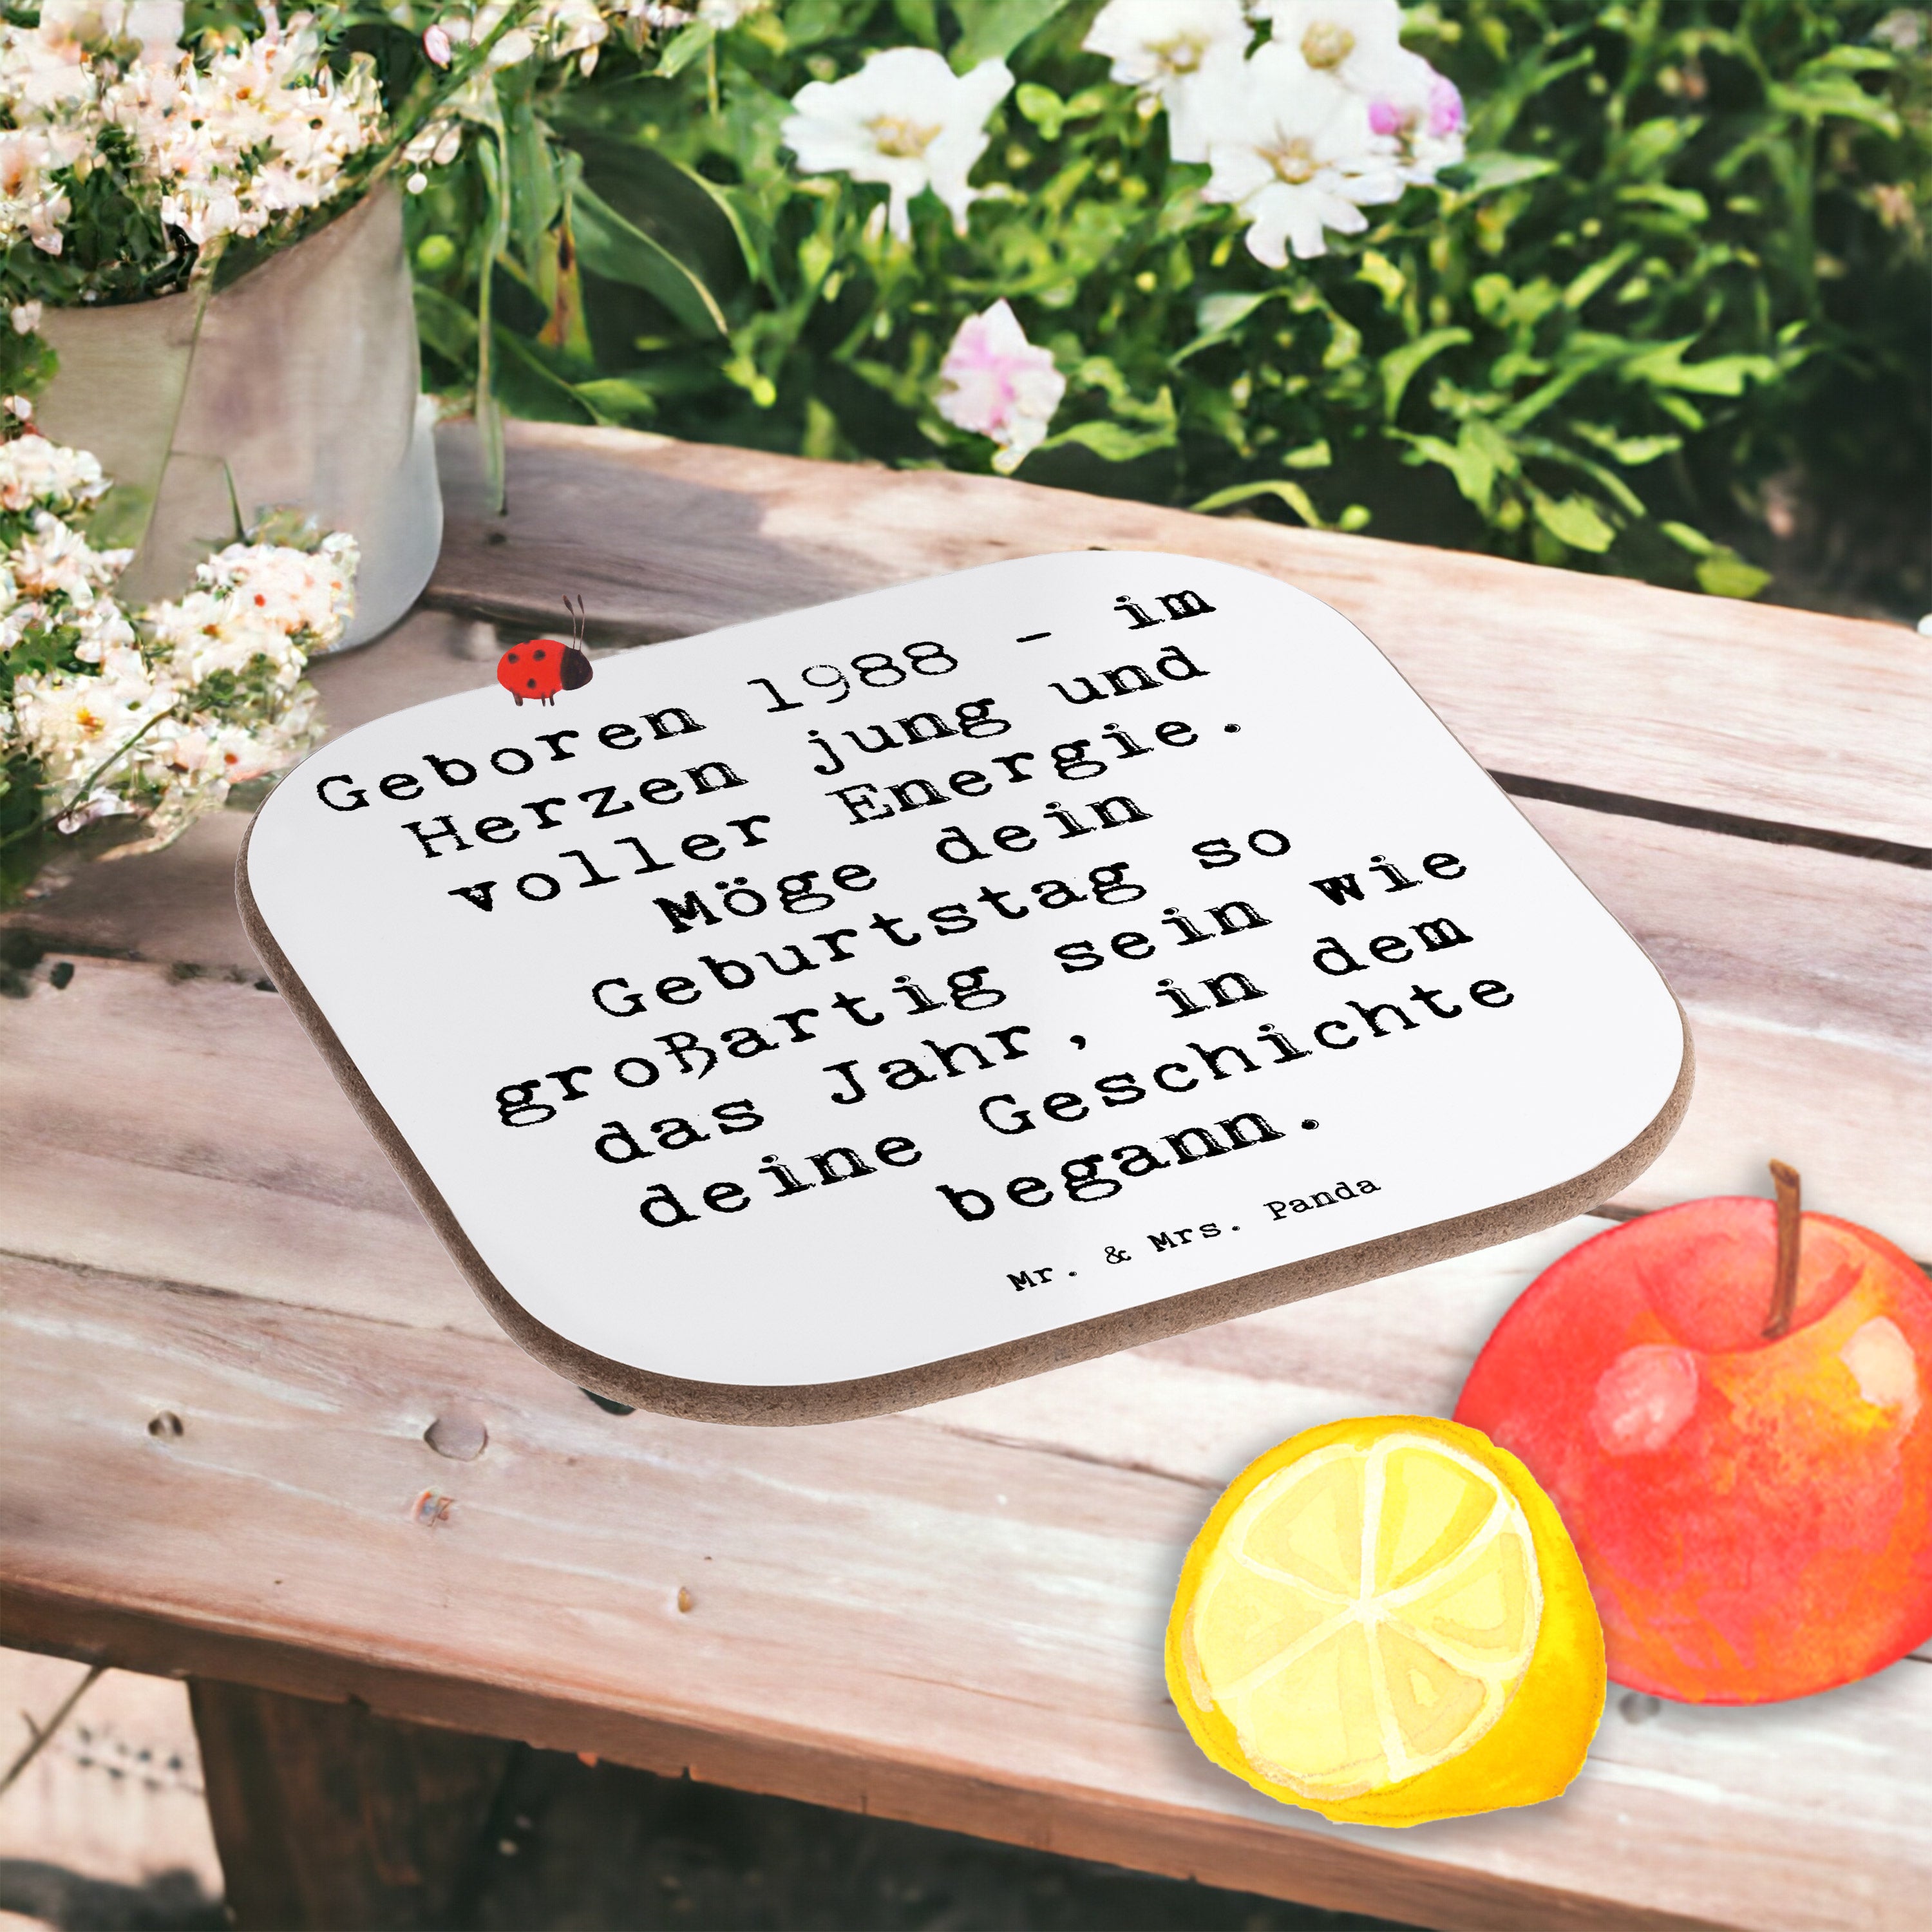 Geboren 1988 - im
Herzen jung und
voller Energie.
Möge dein
Geburtstag so
großartig sein wie
das Jahr, in dem
deine Geschichte
begann.
Mr. & Mrs. Panda